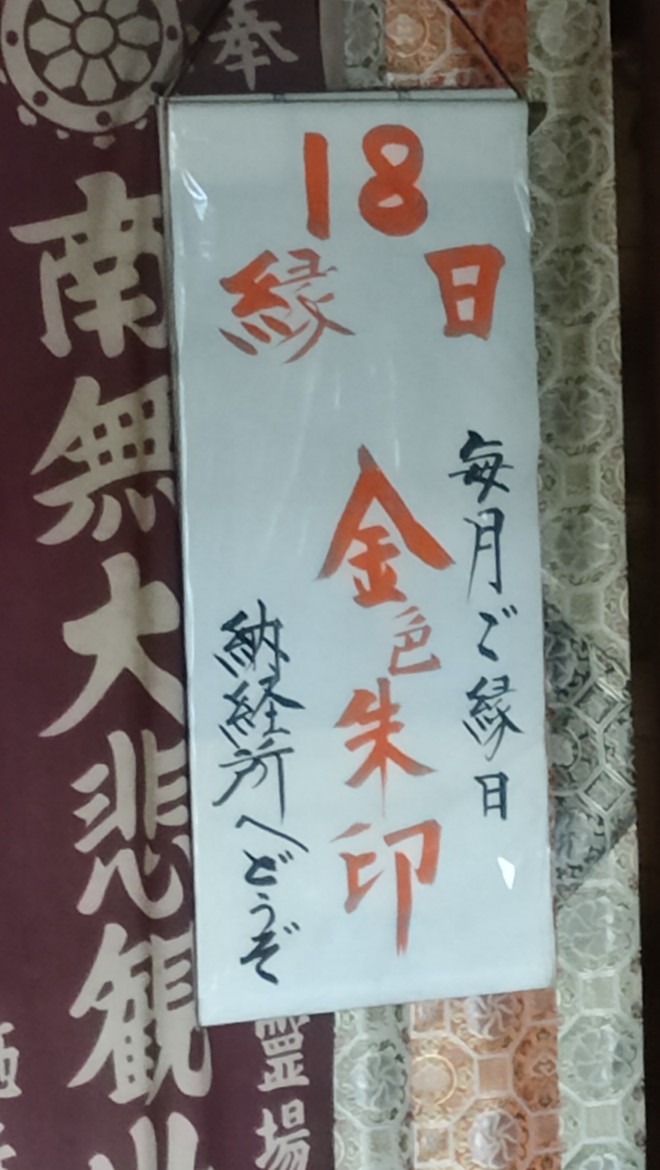 18
縁日
毎月ご縁日
金色朱印
納経所へどうぞ
奉
南無大悲観
霊場